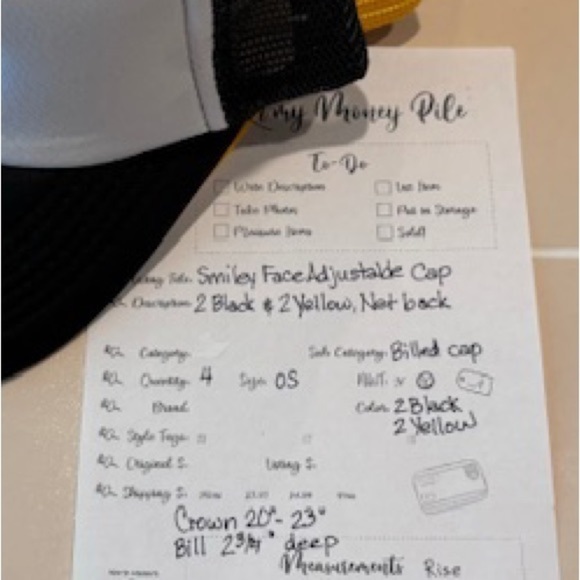 my Money Pile
To-Do
Write Description List Item
Take Photos Put in Storage
Measure Item Sold!
Smiley Face Adjustable Cap
Description: 2 Black & 2 Yellow, Net back
Category: Sub Category: Billed cap
Quantity: 4 Size: OS
Brand: Color: 2 Black
2 Yellow
Style Tags:
Original $: Listing $:
Shipping $:
Crown 20"- 23"
Bill 2 3/4" deep
Measurements Rise